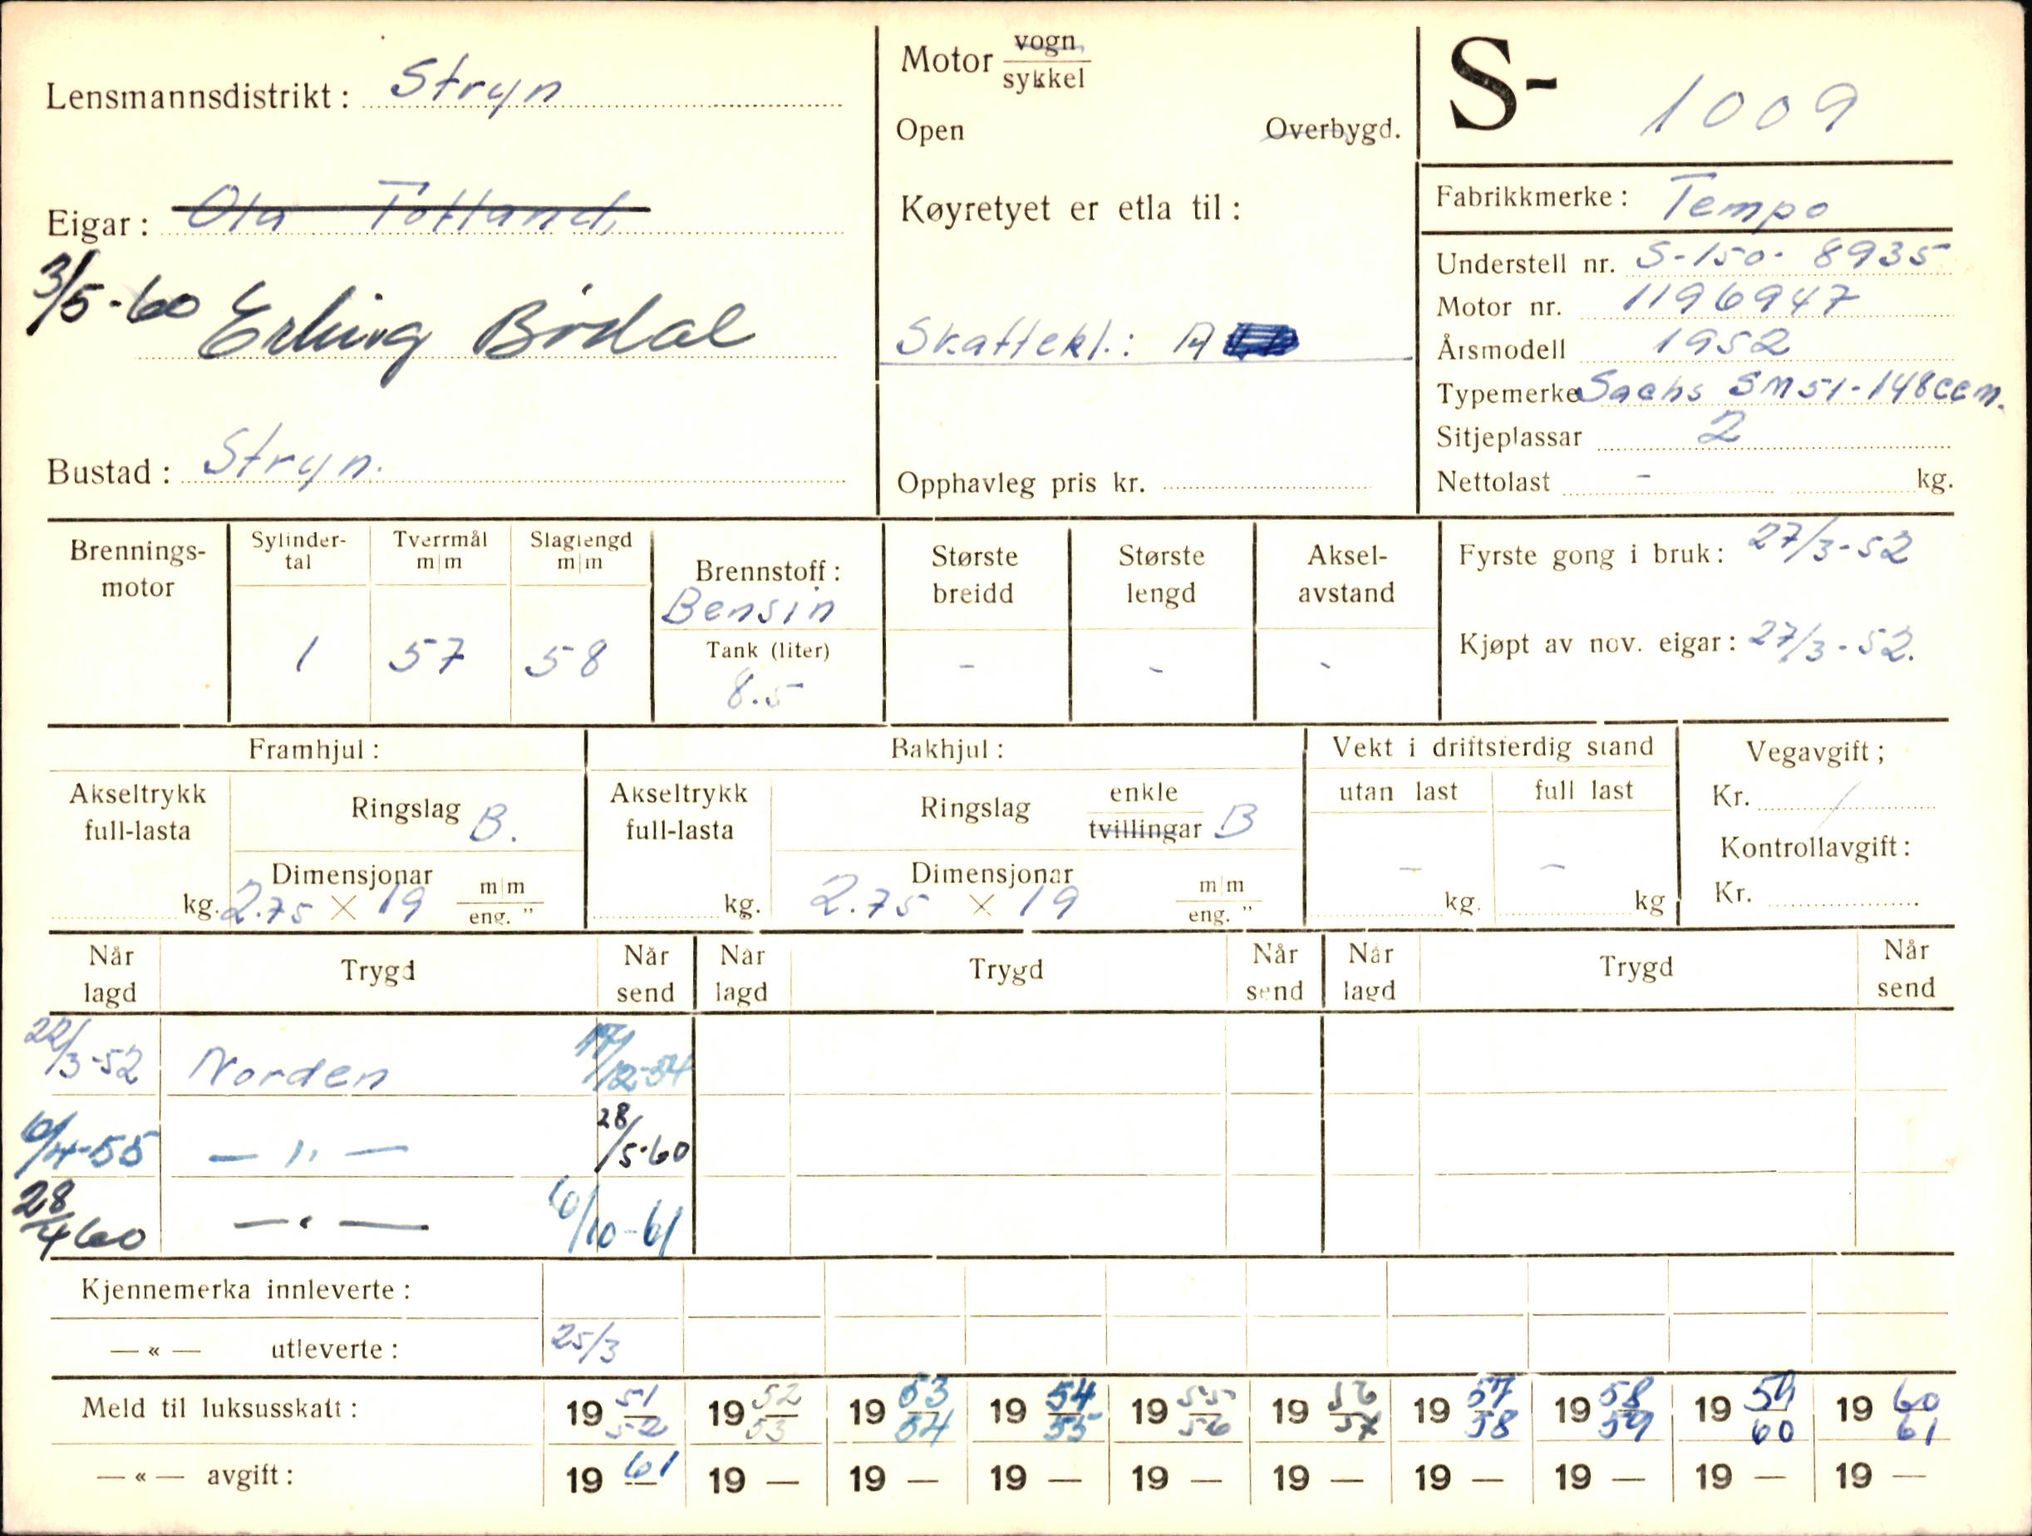 Lensmannsdistrikt: Stryn
Eigar: Ola Totland,
3/5-60 Erling Bødal
Bustad: Stryn.
Motor vogn
sykkel
Open Overbygd.
Køyretyet er etla til:
Skattekl.: A
Opphavleg pris kr.
S- 1009
Fabrikkmerke: Tempo
Understell nr. S-150- 8935
Motor nr. 1196947
Årsmodell 1952
Typemerke Sachs SM51-148ccm.
Sitjeplassar 2
Nettolast - kg.
Brennings-
motor
Sylinder-
tal
1
Tverrmål
m|m
57
Slaglengd
m|m
58
Brennstoff:
Bensin
Tank (liter)
8.5
Største
breidd
-
Største
lengd
-
Aksel-
avstand
-
Fyrste gong i bruk: 27/3-52
Kjøpt av nov. eigar: 27/3-52.
Framhjul:
Akseltrykk
full-lasta
kg.
Ringslag B.
Dimensjonar
2.75 × 19 m|m
eng. "
Bakhjul:
Akseltrykk
full-lasta
kg.
Ringslag enkle
tvillingar B
Dimensjonar
2.75 × 19 m|m
eng. "
Vekt i driftsferdig stand
utan last full last
- -
kg. kg
Vegavgift;
Kr. /
Kontrollavgift:
Kr.
Når
lagd Trygd Når
send Når
lagd Trygd Når
send Når
lagd Trygd Når
send
22/3-52 Norden 17/12-54
6/4-55 — " — 28/5-60
28/4 60 — " — 6/10-61
Kjennemerka innleverte:
— « — utleverte: 25/3
Meld til luksusskatt: 19 51/52 19 52/53 19 53/54 19 54/55 19 55/56 19 56/57 19 57/58 19 58/59 19 59/60 19 60/61
— « — avgift: 19 61 19 — 19 — 19 — 19 — 19 — 19 — 19 — 19 — 19 —